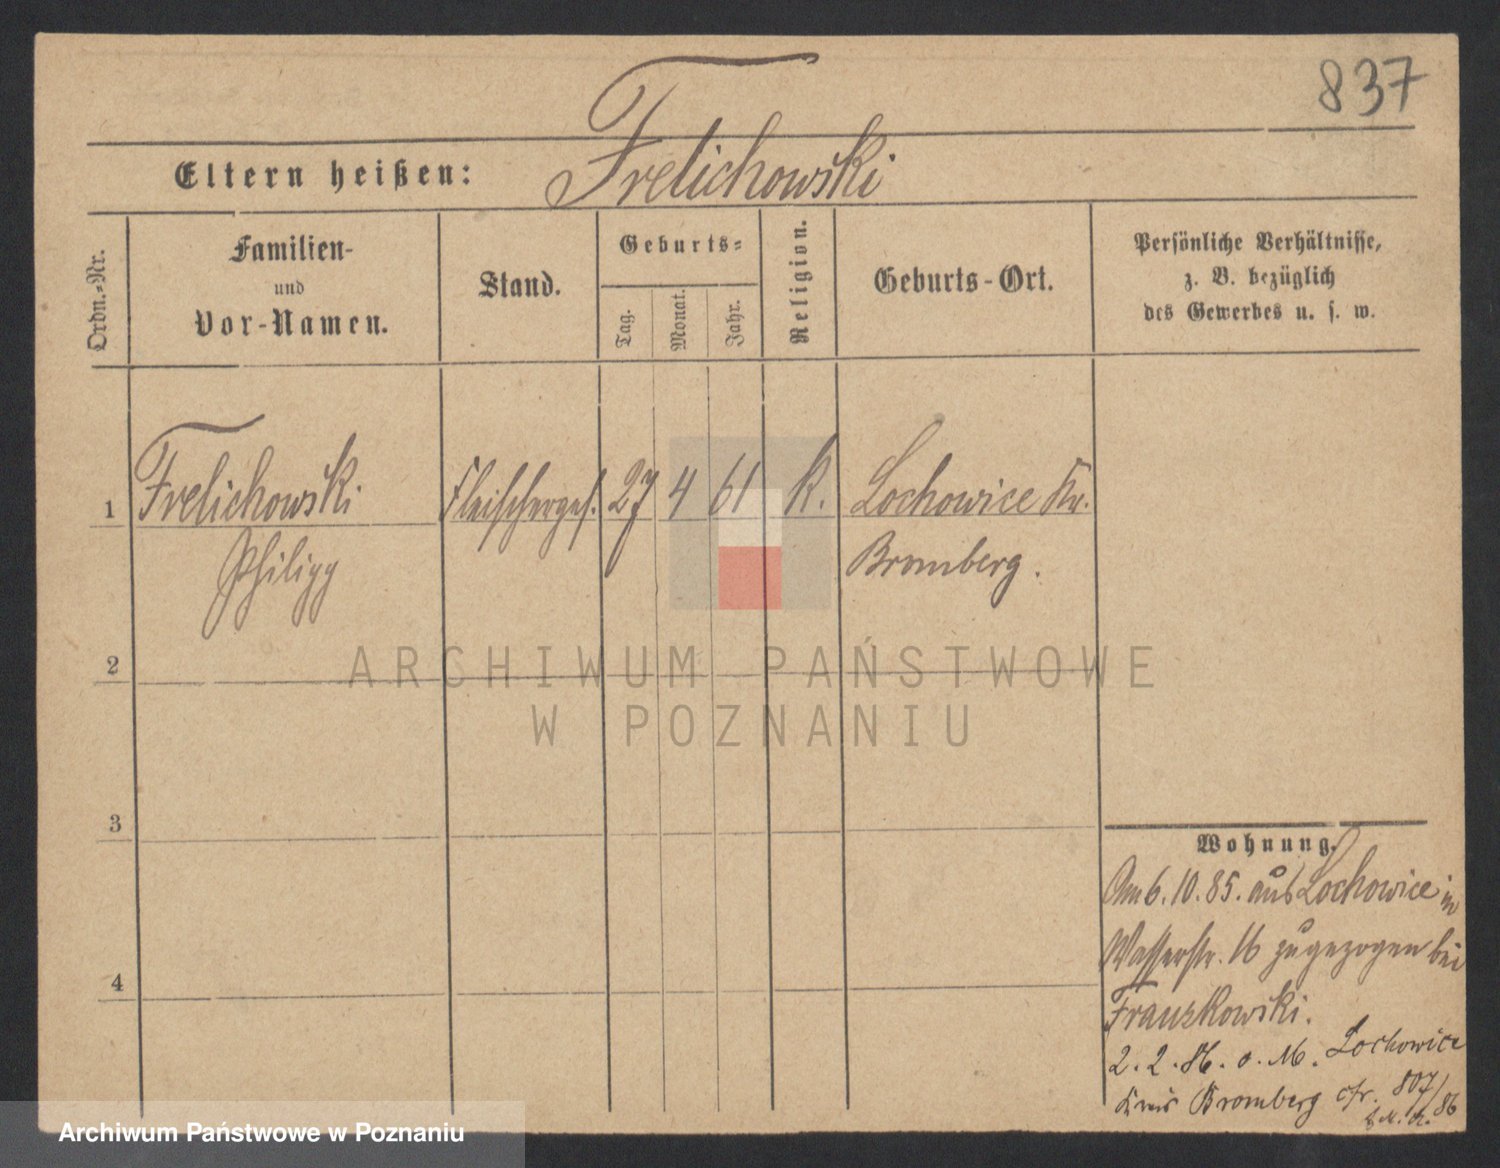 837
Frelichowski
Eltern heißen:
Ordn.-Nr.
Familien-
und
Vor-Namen.
Stand.
Geburts-
Tag.
Monat.
Jahr.
Religion.
Geburts-Ort.
Persönliche Verhältnisse,
z. B. bezüglich
des Gewerbes u. s. w.
1 Frelichowski Fleischerges. 27 4 61 K. Lochowice Kr.
Philipp Bromberg.
2
3
4
Wohnung.
Am 6.10.85. aus Lochowice in
Wasserstr. 16 zugezogen bei
Franzkowski.
2.2.86. o. M. Lochowice
Kreis Bromberg cfr. 807/86
ARCHIWUM PAŃSTWOWE
W POZNANIU
Archiwum Państwowe w Poznaniu